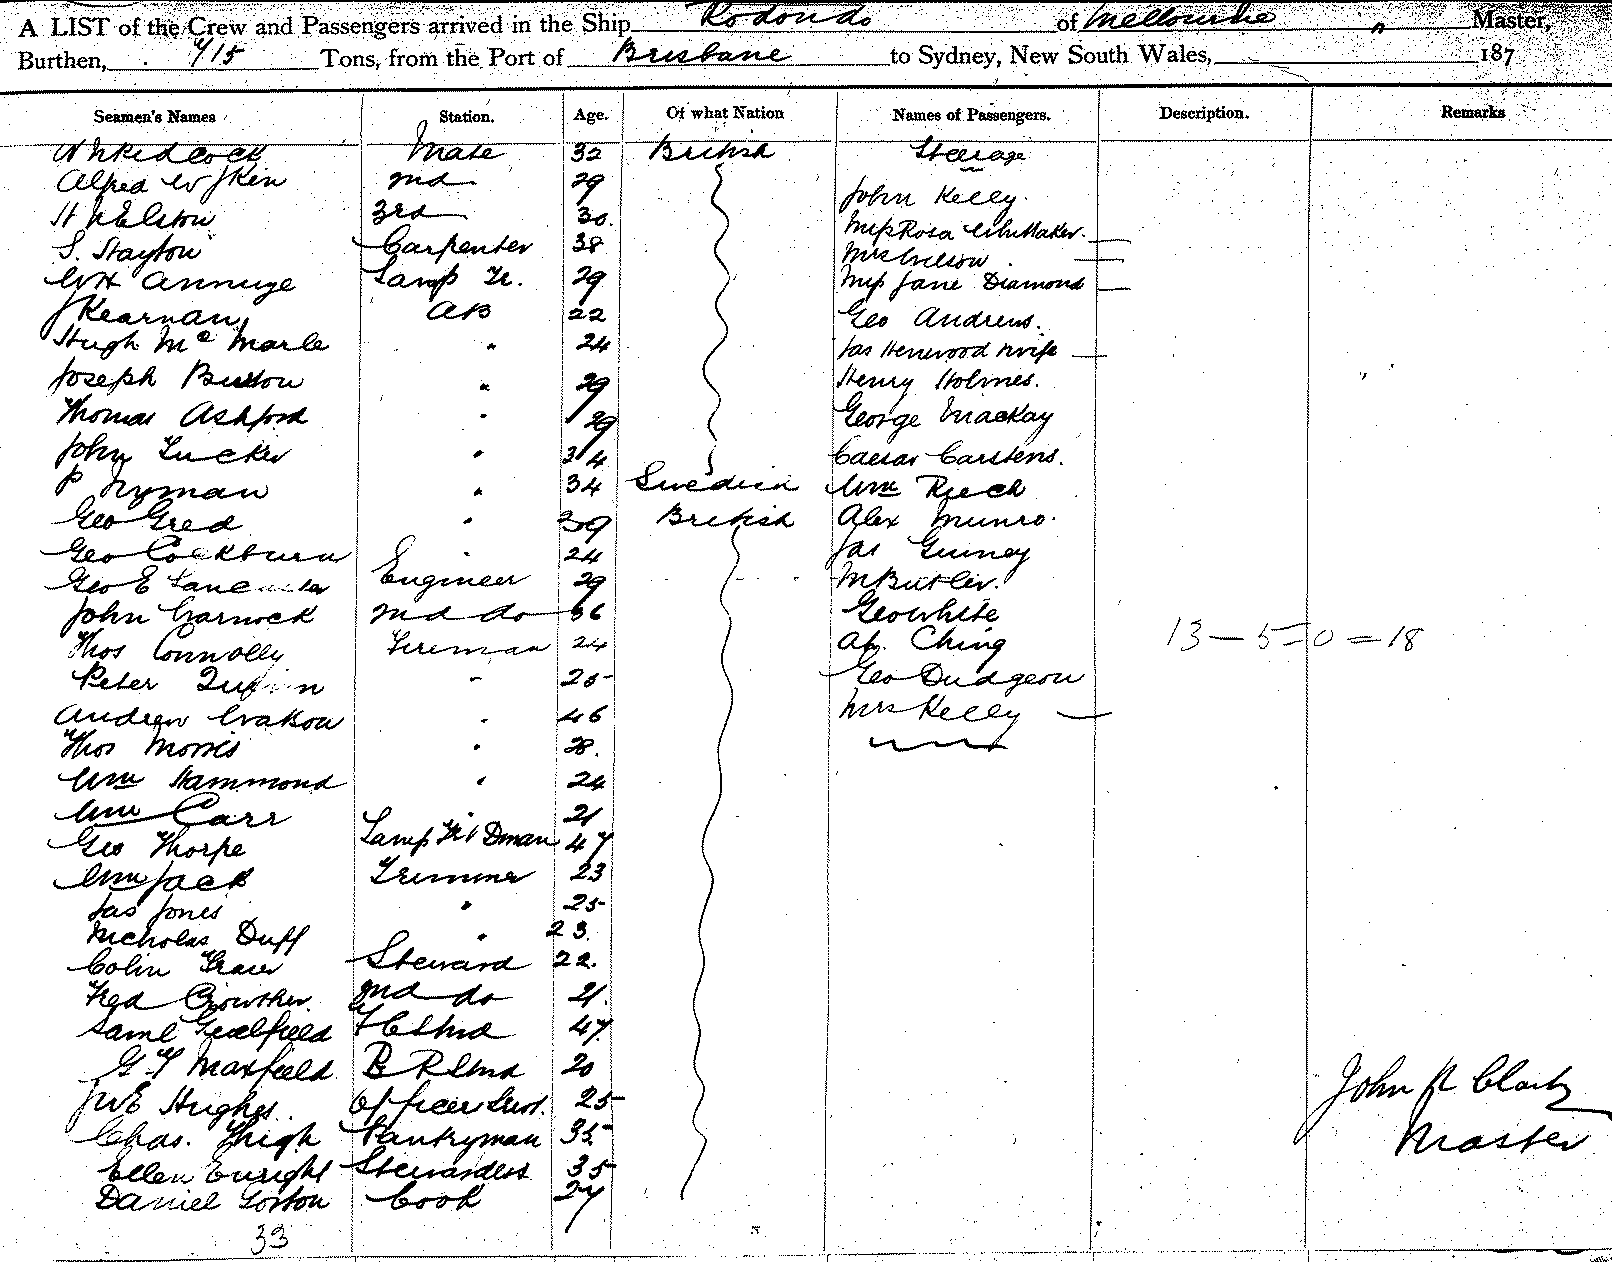 A LIST of the Crew and Passengers arrived in the Ship Rodondo of Melbourne " Master,
Burthen, 715 Tons, from the Port of Brisbane to Sydney, New South Wales, 187
Seamen's Names Station. Age. Of what Nation Names of Passengers. Description. Remarks
Mate 32 British Steerage
Alfred 2nd 29 John Kelly.
3rd 30. Miss Rosa Whittaker. —
S. Stayton Carpenter 38 Mrs Wilson. —
WH Lamp Tr. 29 Miss Jane Diamond —
J Kearnan AB 22 Geo Andrews.
Hugh Mc " 24 Jas Henwood & wife —
Joseph Burton " 29 Henry Holmes.
Thomas Ashford " 29 George Mackay
John Tucker " 34 Caesar Carstens.
P Nyman " 34 Swedish Wm
Geo Gred " 39 British Alex Munro.
Geo Cockburn " 24 Jas Guiney
Geo E Engineer 29 M Butler.
John Warnock 2nd do 36 Geo White
Thos Connolly Fireman 24 Ah. Ching 13 — 5 = 0 = 18
Peter " 25 Geo Dudgeon
Andrew " 46 Mrs Kelly —
Thos Morris " 28.
Wm Hammond " 24
Wm Carr 21
Geo Thorpe Lamp Tr & Dman 47
Wm Jack Trimmer 23
Jas Jones " 25
Nicholas Duff " 23.
Colin Steward 22.
Fred Crowther 2nd do 21.
Saml 47.
G. Maxfield 20
J W E Hughes. Officer Stwd. 25
Chas. Pantryman 35
Ellen Enright Stewardess 35
Daniel Gorton Cook 27
33
John Clark
Master